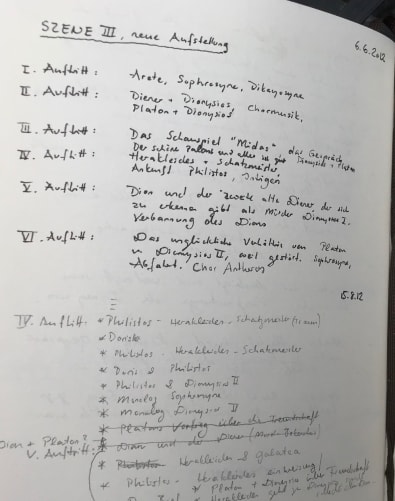 SZENE III, neue Aufstellung
6.6.2012
I. Auftritt: Arete, Sophrosyne, Dikayosyne
II. Auftritt: Diener + Dionysios, Chormusik,
Platon + Dionysios
III. Auftritt: Das Schauspiel "Midas", das Gespräch
Der schöne und alles ist gut Dionysios + Platon
IV. Auftritt: Herakleides + Schatzmeister,
Ankunft Philistos, Intrigen
V. Auftritt: Dion und der zweite alte Diener der sich
zu erkennen gibt als Mörder Dionysios 1.
Verbannung des Dion
VI. Auftritt: Das unglückliche Verhältnis von Platon
u Dionysios II, weil gestört. Sophrosyne,
Abfahrt. Chor Antheus
15.8.12
IV. Auftritt: * Philistos - Herakleides - Schatzmeister
* Doris
* Philistos - Herakleides - Schatzmeister
* Doris & Philistos
* Philistos & Dionysios II
* Monolog Sophrosyne
* Monolog Dionysios II
* Platons Vortrag über die Freundschaft
Dion + Platon?
V. Auftritt: * Dion und der Diener
* Philistos Herakleides & Galatea
* Philistos - Herakleides
* Platon + Dionysios über Freundschaft
* Herakleides geht zu